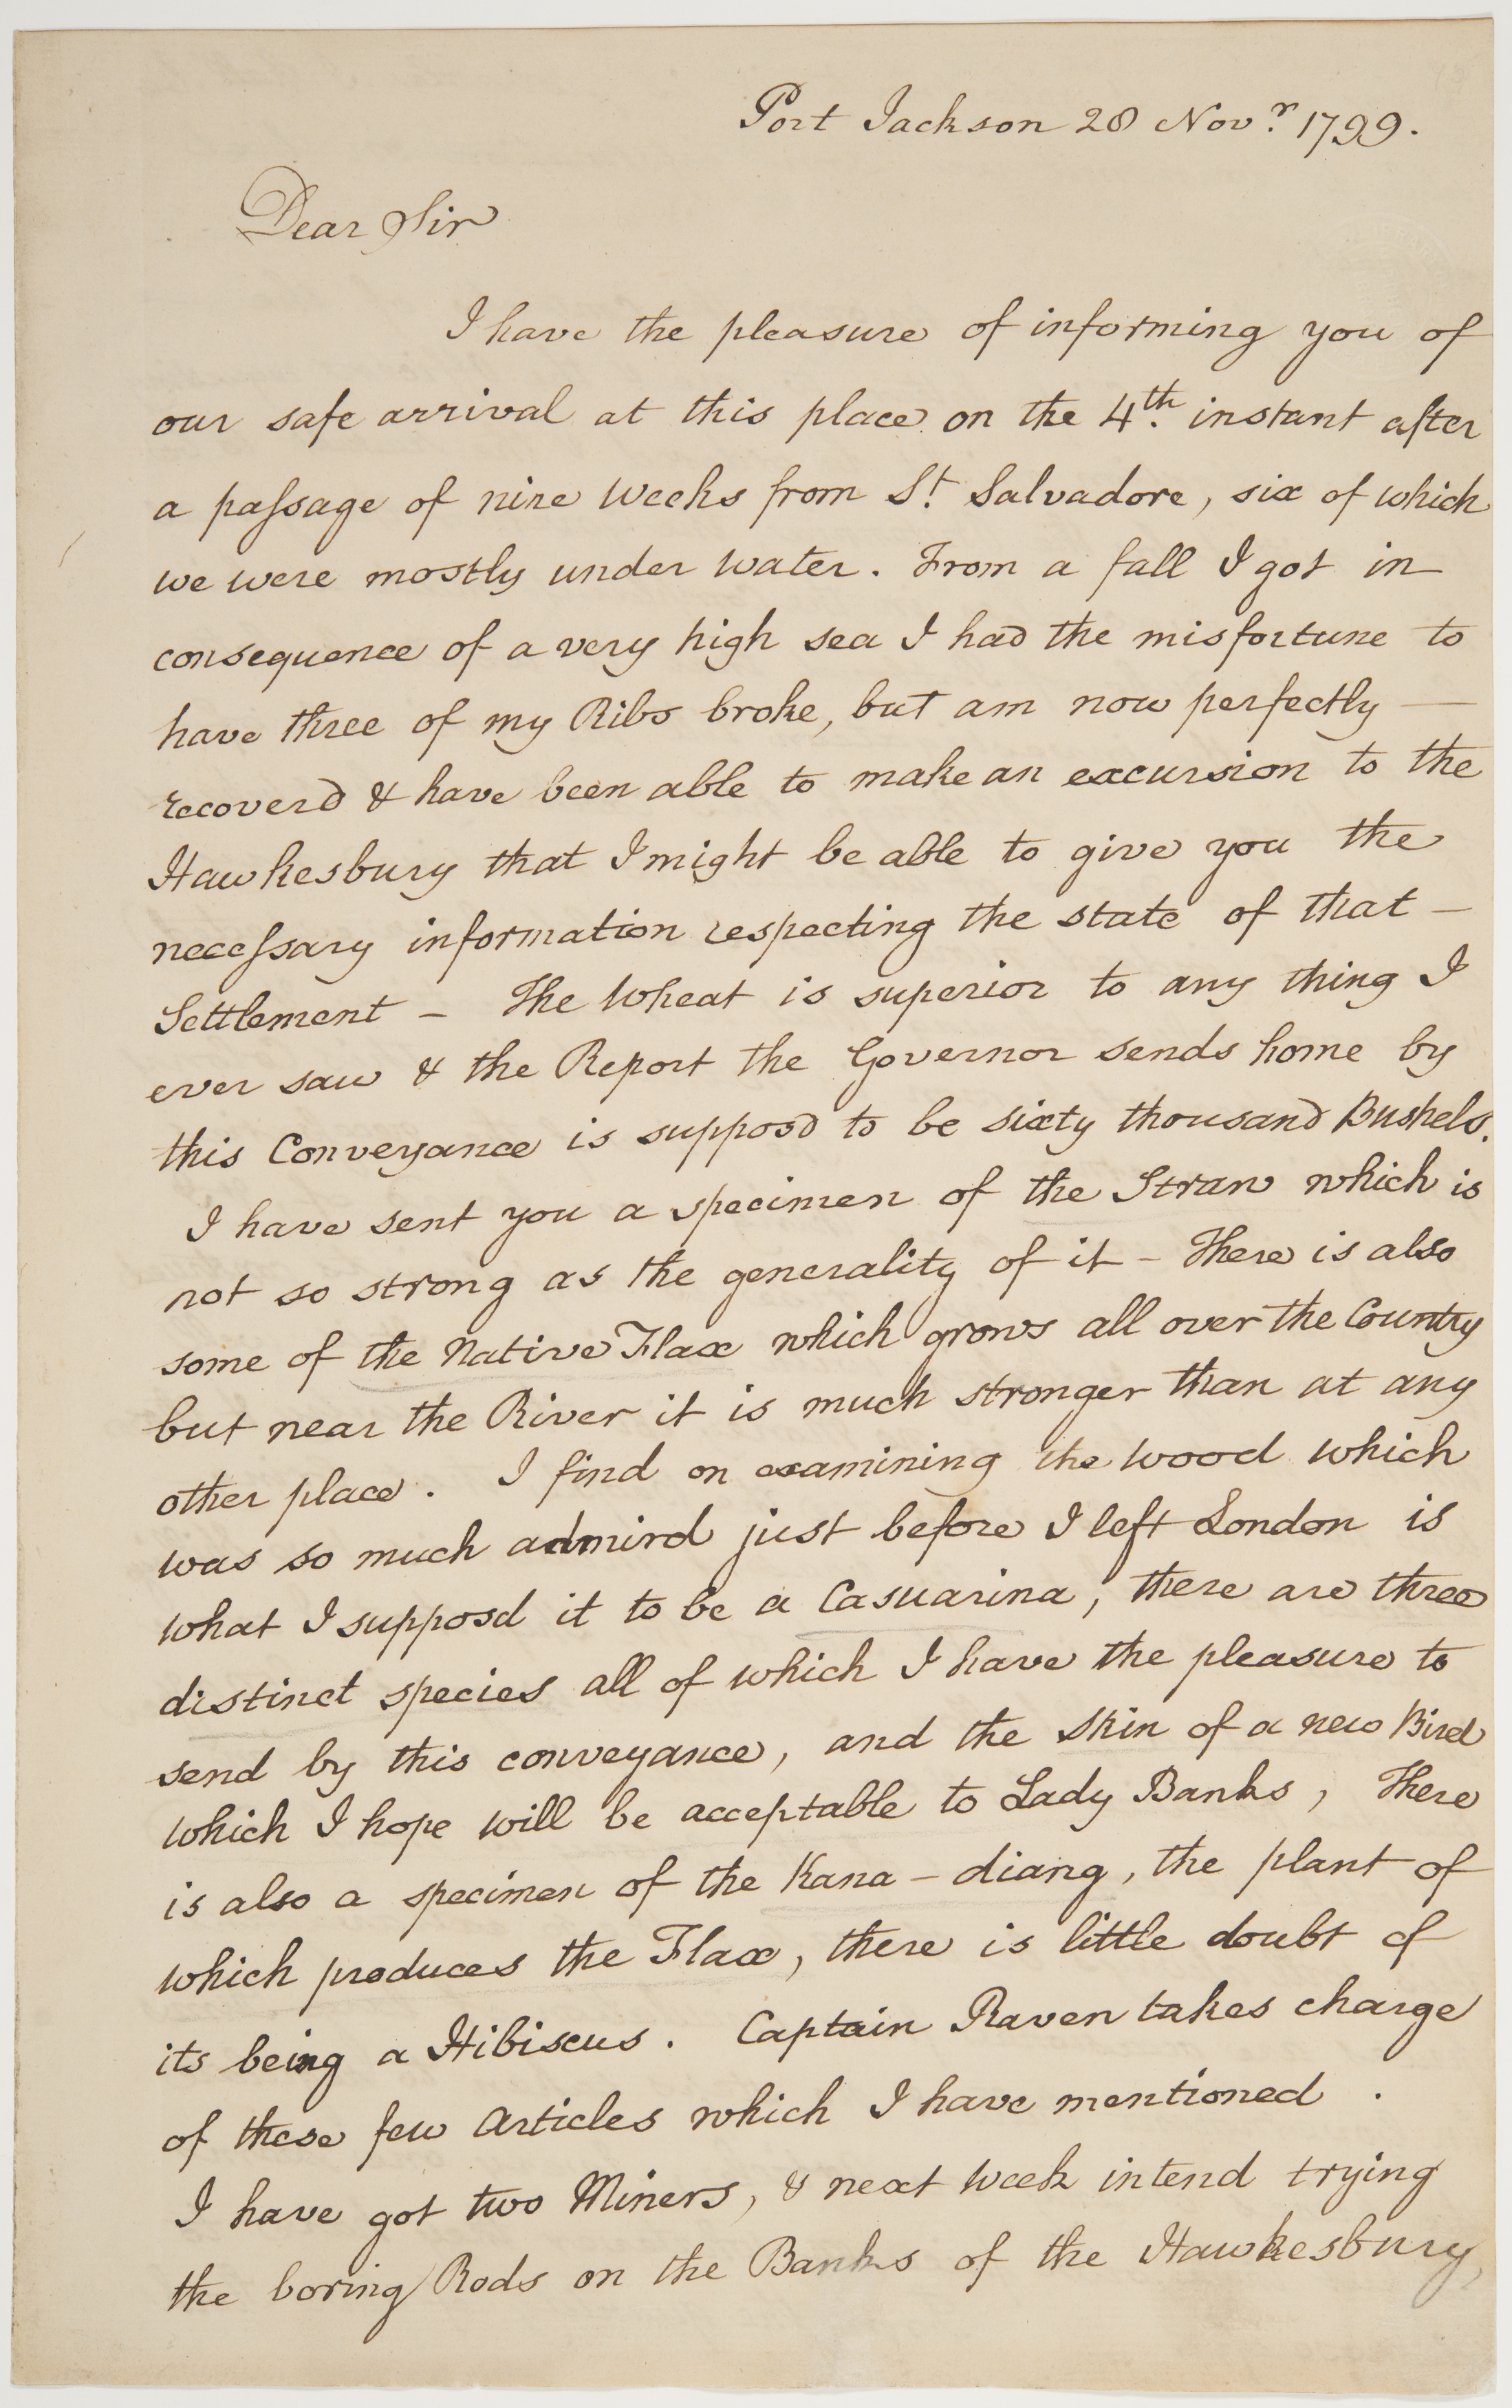 Port Jackson 28 Novr. 1799.
Dear Sir
I have the pleasure of informing you of
our safe arrival at this place on the 4th. instant after
a paſsage of nine weeks from St. Salvadore, six of which
we were mostly under water. From a fall I got in
consequence of a very high sea I had the misfortune to
have three of my Ribs broke, but am now perfectly —
recoverd & have been able to make an excursion to the
Hawkesbury that I might be able to give you the
neceſsary information respecting the state of that —
Settlement — The Wheat is superior to any thing I
ever saw & the Report the Governor sends home by
this Conveyance is supposd to be sixty thousand Bushels.
I have sent you a specimen of the Straw which is
not so strong as the generality of it — There is also
some of the Native Flax which grows all over the Country
but near the River it is much stronger than at any
other place. I find on examining the wood which
was so much admird just before I left London is
what I supposd it to be a Casuarina, there are three
distinct species all of which I have the pleasure to
send by this conveyance, and the skin of a new Bird
which I hope will be acceptable to Lady Banks, There
is also a specimen of the Kana — diang, the plant of
which produces the Flax, there is little doubt of
its being a Hibiscus. Captain Raven takes charge
of these few Articles which I have mentioned.
I have got two Miners, & next week intend trying
the boring Rods on the Banks of the Hawkesbury,